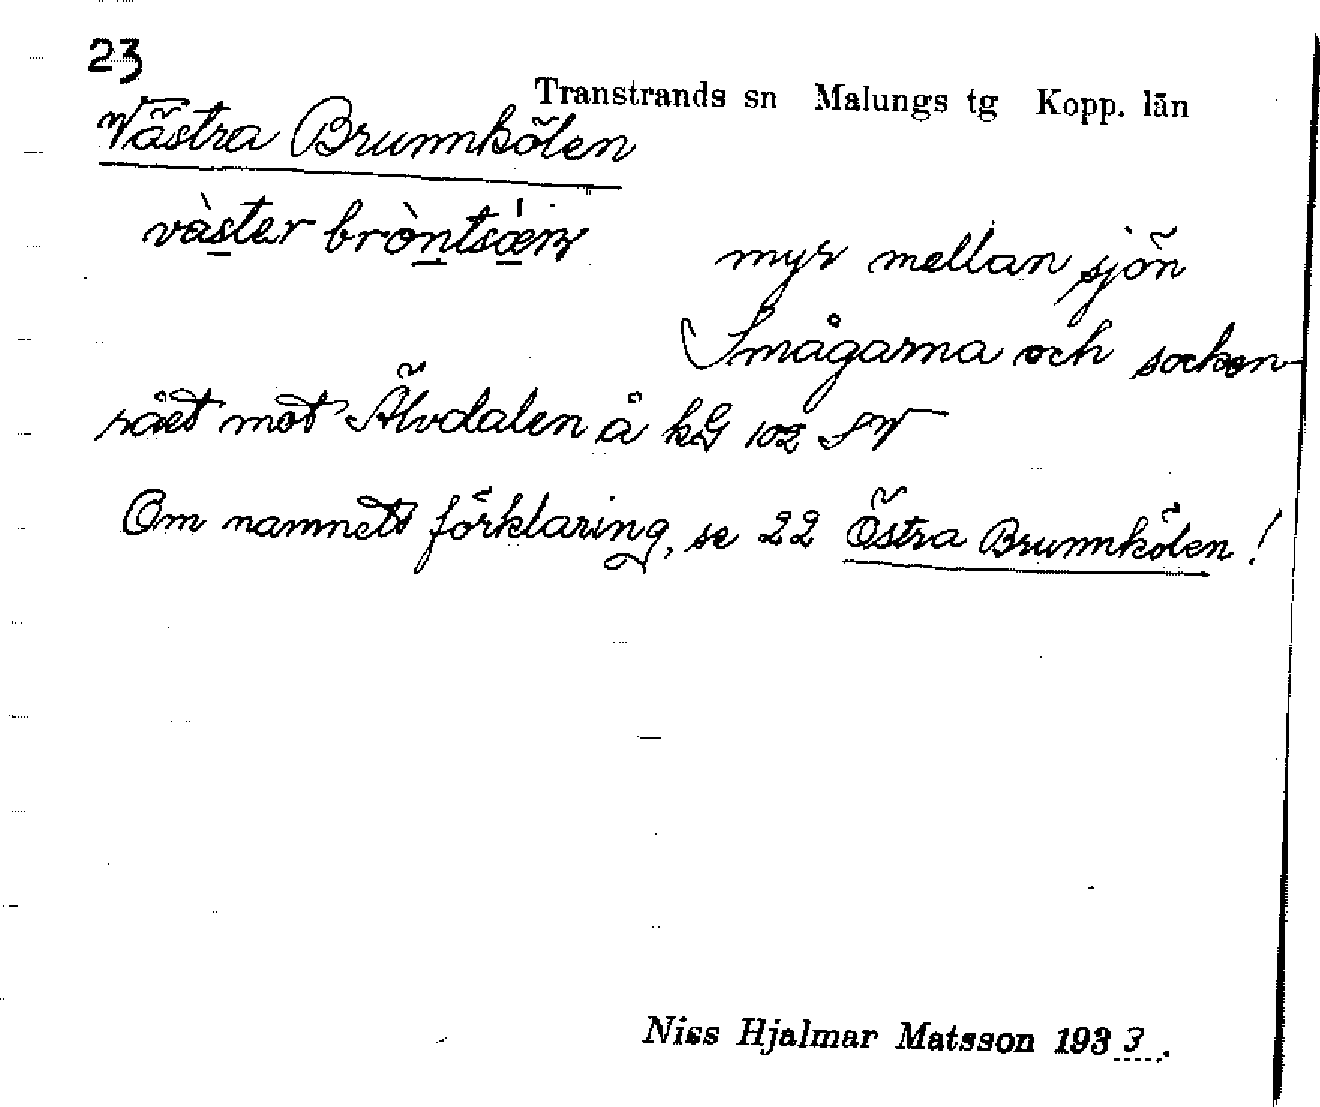 23
Transtrands sn Malungs tg Kopp. län
Västra Brunnkölen
väster
myr mellan sjön
Smågarna och socken-
rået mot Älvdalen å kG 102 SV
Om namnets förklaring, se 22 Östra Brunnkölen!
Niss Hjalmar Matsson 1933.